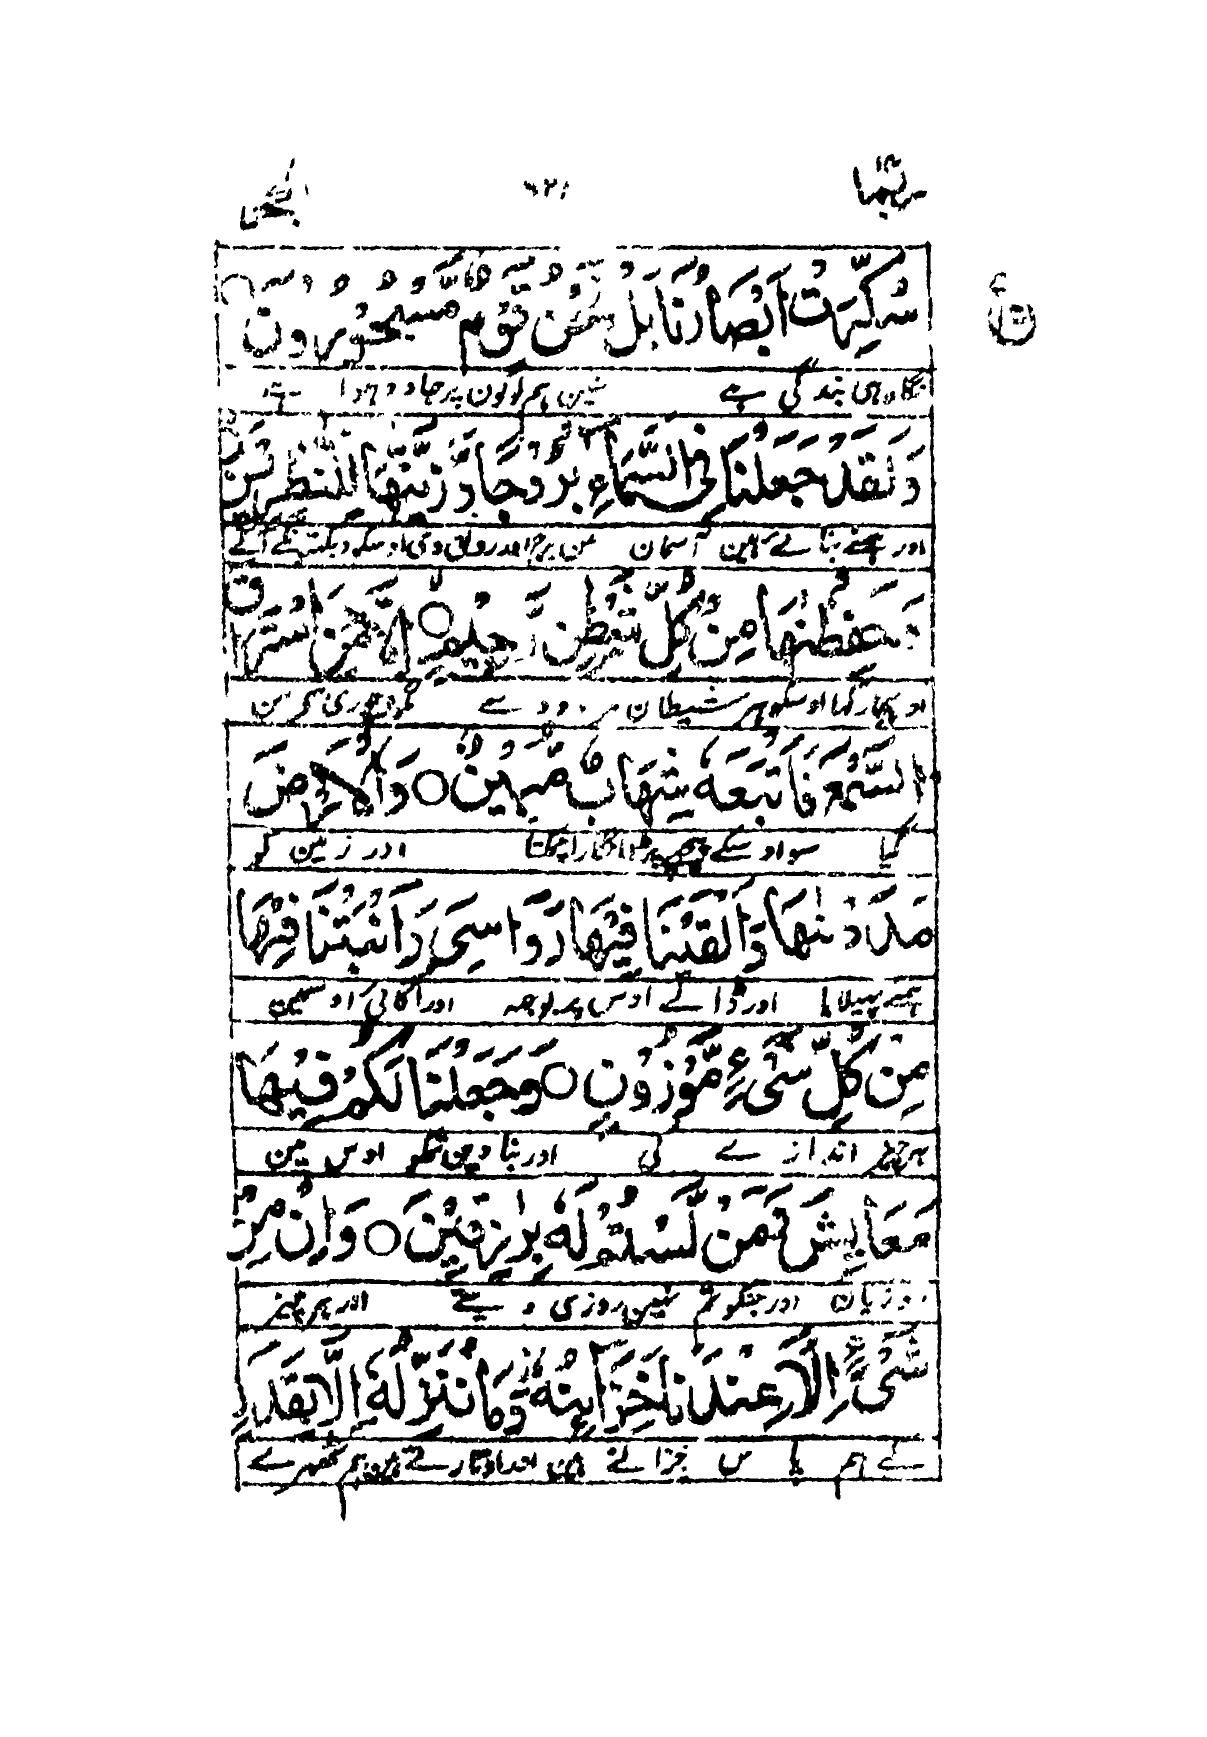 ربما ١٤ ٤٢١ الحجر
سُكِّرَتْ أَبْصَارُنَا بَلْ نَحْنُ قَوْمٌ مَّسْحُورُونَ ○
نگاہ ہی بندگی ہے نہین ہم لوگون پر جادو ہوا ہے
وَلَقَدْ جَعَلْنَا فِي السَّمَاءِ بُرُوجًا وَّزَيَّنّٰهَا لِلنّٰظِرِيْنَ
اور ہمنے بنائے ہین آسمان مین برج اور رونق دی اوسکو دیکھتونکے آگے
وَحَفِظْنٰهَا مِنْ كُلِّ شَيْطٰنٍ رَّجِيْمٍ ○ اِلَّا مَنِ اسْتَرَقَ
اور بچا رکھا اوسکو ہر شیطان مردود سے مگر جو چوری سے سن
السَّمْعَ فَاَتْبَعَهٗ شِهَابٌ مُّبِيْنٌ ○ وَالْاَرْضَ
گیا سو اوسکے پیچھے پڑا انگارا چمکتا اور زمین کو
مَدَدْنٰهَا وَاَلْقَيْنَا فِيْهَا رَوَاسِيَ وَاَنْبَتْنَا فِيْهَا
ہمنے پھیلایا اور ڈالے اوس پر بوجھ اور اگائی اوسمین
مِنْ كُلِّ شَيْءٍ مَّوْزُوْنٍ ○ وَجَعَلْنَا لَكُمْ فِيْهَا
ہر چیز اندازے کی اور بنا دین تمکو اوس مین
مَعَايِشَ وَمَنْ لَّسْتُمْ لَهٗ بِرٰزِقِيْنَ ○ وَاِنْ مِّنْ
روزیان اور جنکو تم نہین روزی دیتے اور ہر چیز
شَيْءٍ اِلَّا عِنْدَنَا خَزَائِنُهٗ وَمَا نُنَزِّلُهٗ اِلَّا بِقَدَرٍ
کے ہم پاس خزانے ہین اور اوتارتے ہین ہم ٹھہرے